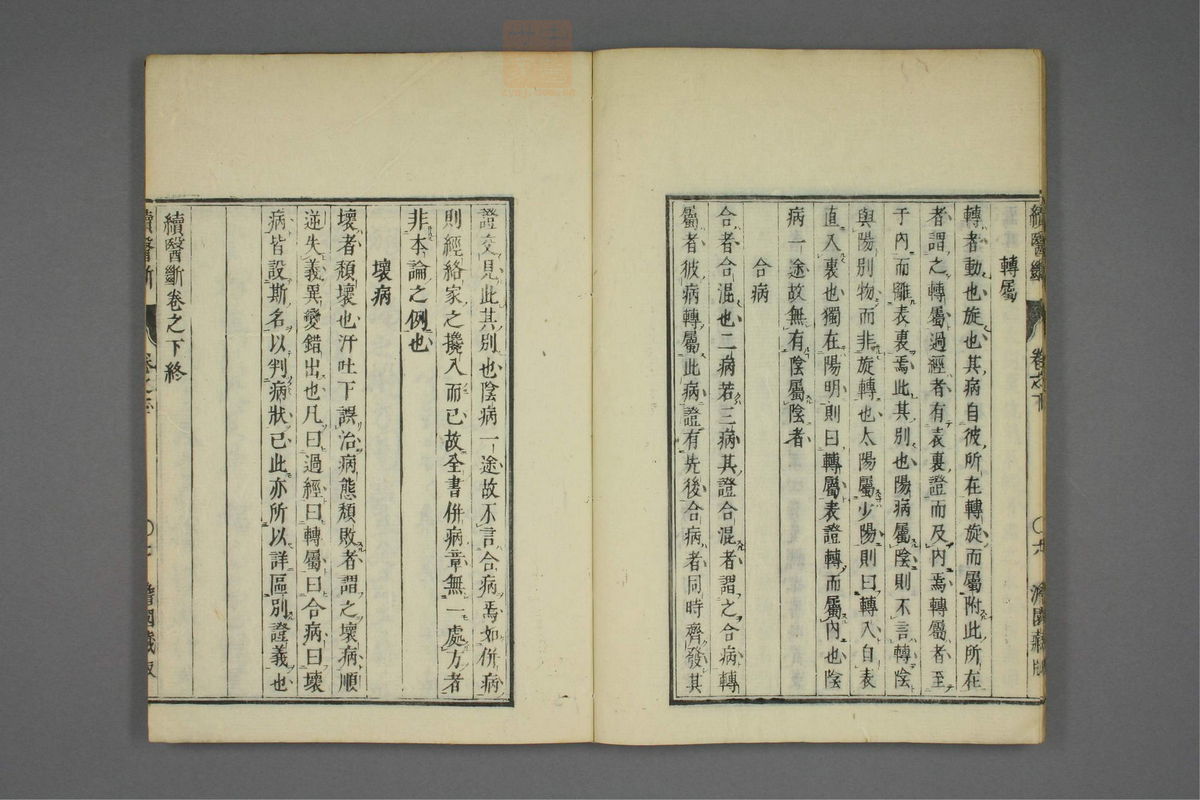 續醫斷
卷之下
轉屬
轉者動也旋也其病自彼所在轉旋而屬附此所在
者謂之轉屬過經者有表裏證而及内焉轉屬者至
于内而離表裏焉此其別也陽病屬陰則不言轉陰
與陽別物而非旋轉也太陽屬少陽則曰轉入自表
直入裏也獨在陽明則曰轉屬表證轉而屬内也陰
病一途故無有陰屬陰者
合病
合者合混也二病若三病其證合混者謂之合病轉
屬者彼病轉屬此病證有先後合病者同時齊發其
證交見此其別也陰病一途故不言合病焉如併病
則經絡家之攙入而已故全書併病章無一處方者
非本論之例也
壞病
壞者頹壞也汗吐下誤治病態頹敗者謂之壞病順
逆失義異變錯出也凡曰過經曰轉屬曰合病曰壞
病皆設斯名以判病狀已此亦所以詳區別證義也
續醫斷卷之下終
續醫斷